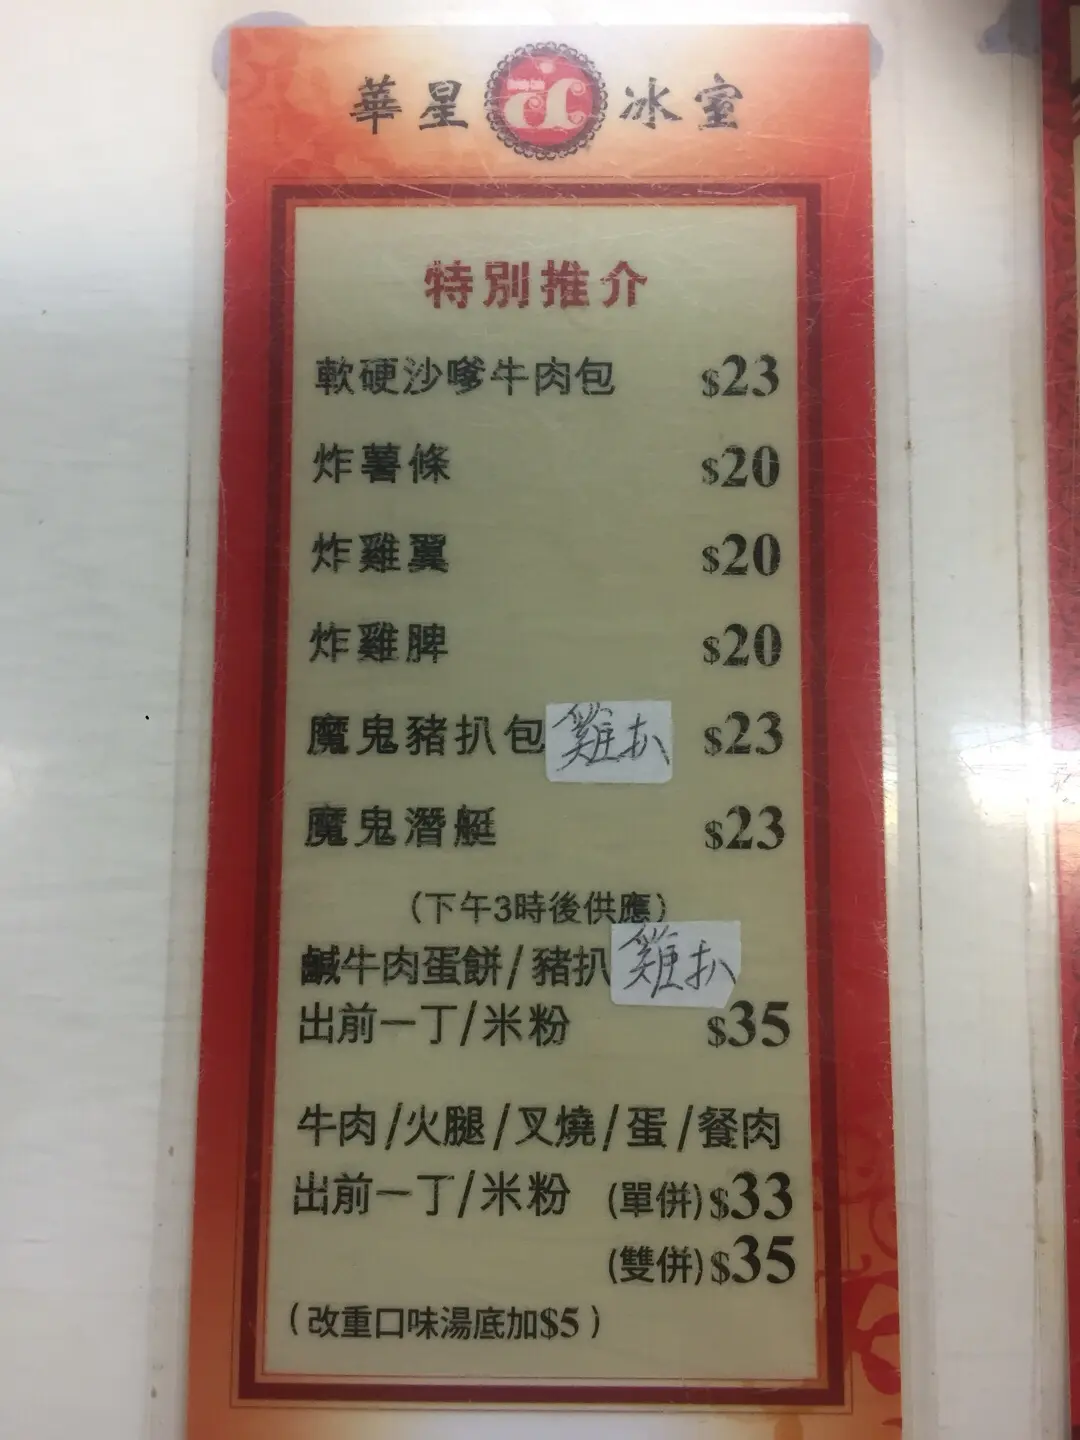 華星 冰室
特別推介
軟硬沙嗲牛肉包 $23
炸薯條 $20
炸雞翼 $20
炸雞脾 $20
魔鬼豬扒包 雞扒 $23
魔鬼潛艇 $23
(下午3時後供應)
鹹牛肉蛋餅/豬扒 雞扒
出前一丁/米粉 $35
牛肉/火腿/叉燒/蛋/餐肉
出前一丁/米粉 (單併)$33
(雙併)$35
(改重口味湯底加$5)